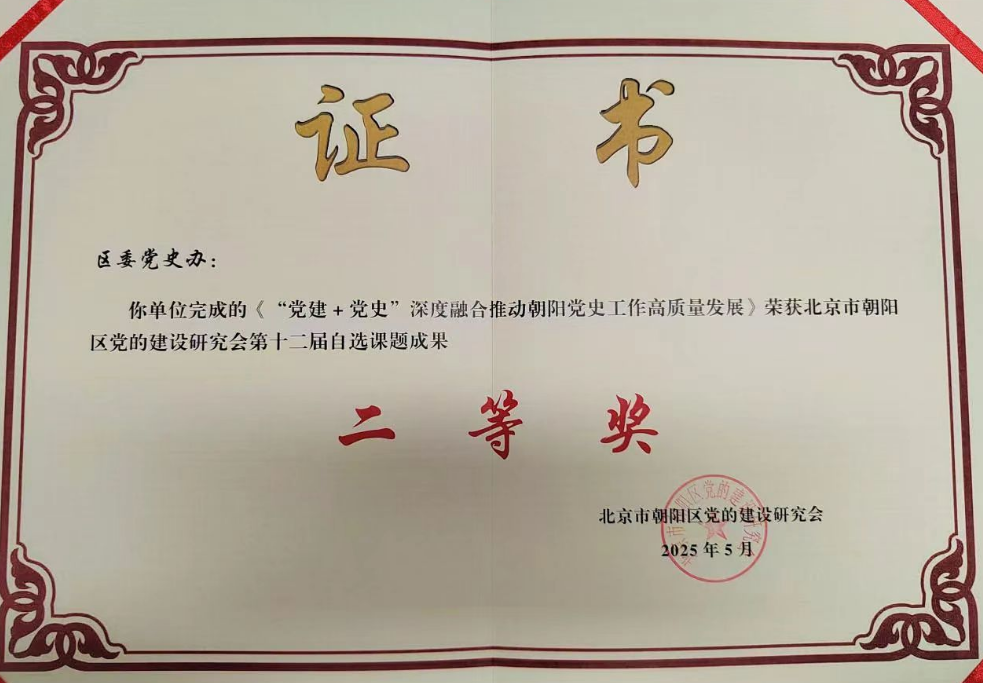 证书
区委党史办：
你单位完成的《“党建+党史”深度融合推动朝阳党史工作高质量发展》荣获北京市朝阳
区党的建设研究会第十二届自选课题成果
二等奖
北京市朝阳区党的建设研究会
2025年5月
北京市朝阳区党的建设研究会